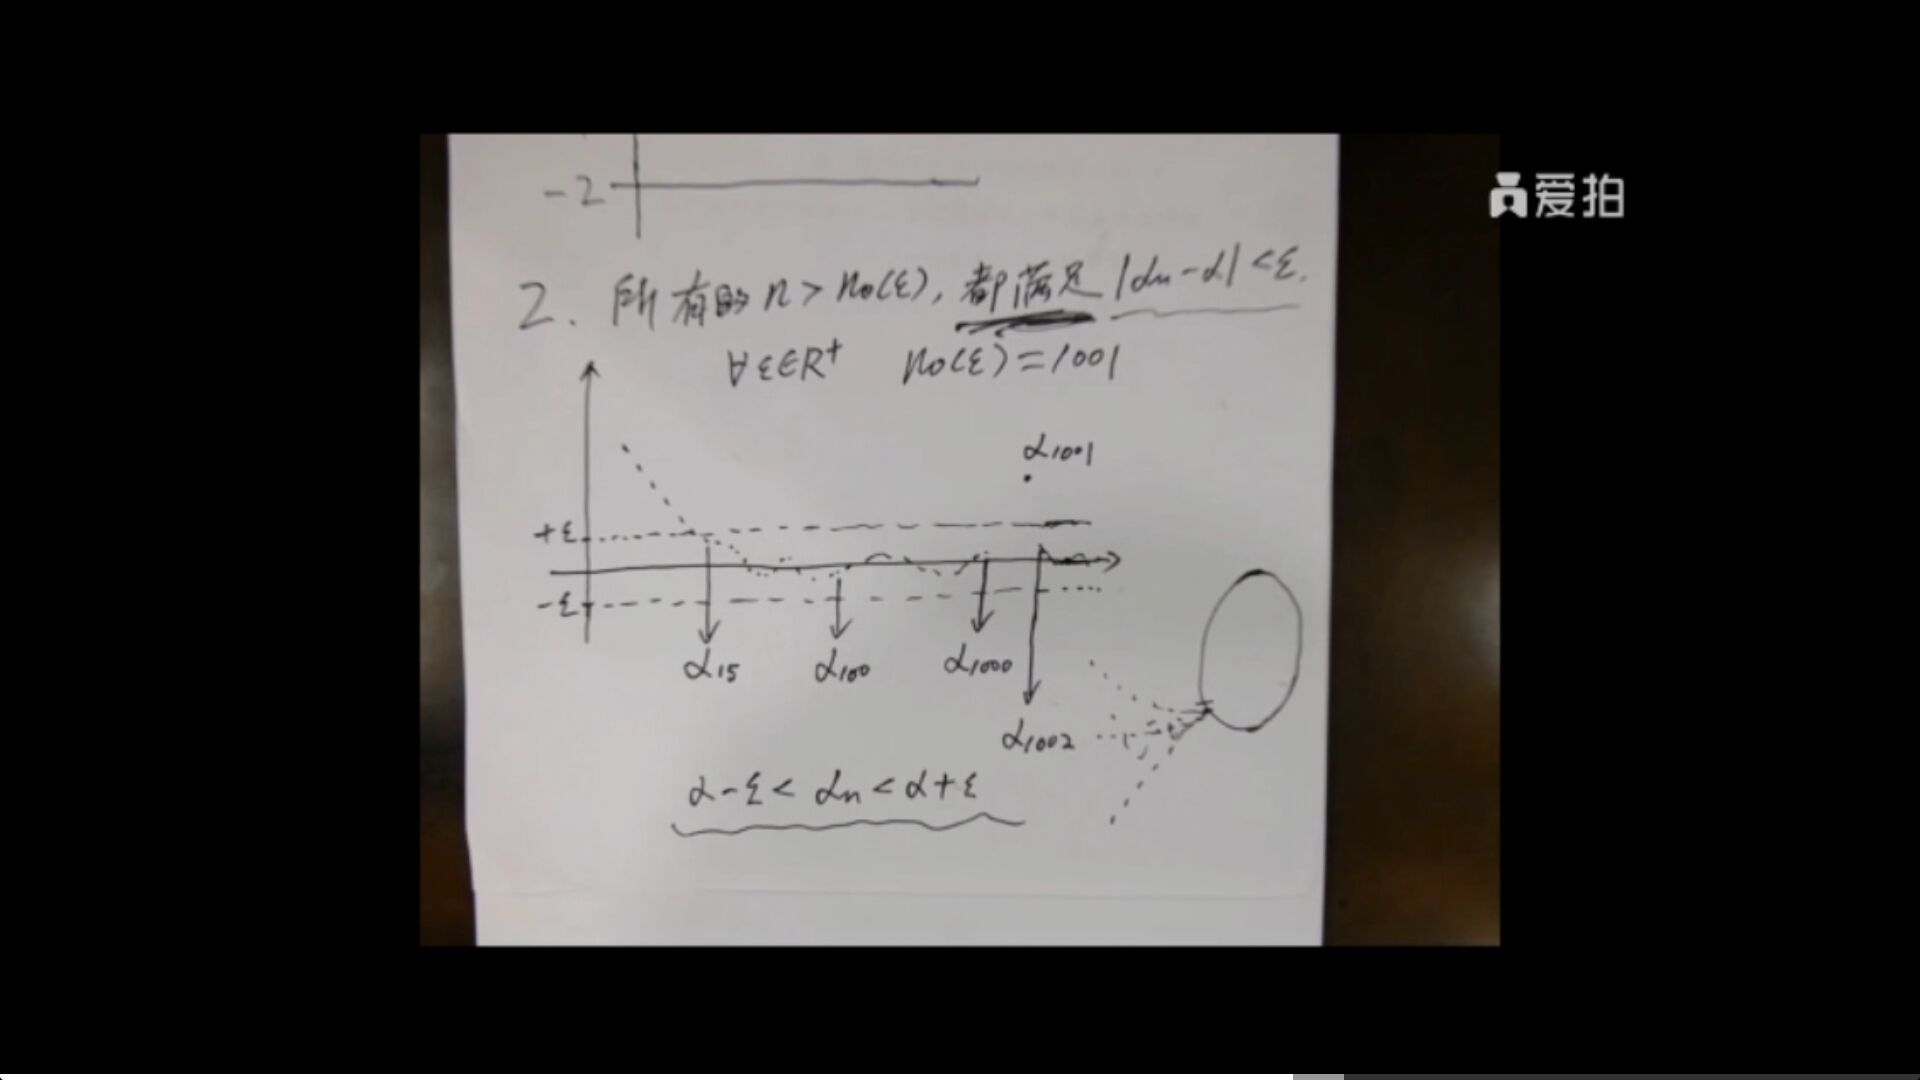 爱拍
-2
2. 所有的 n > n₀(ε), 都满足 |αn - α| < ε.
∀ε∈R⁺ n₀(ε) = 1001
α1001
+ε
-ε
α15 α100 α1000
α1002
α - ε < αn < α + ε